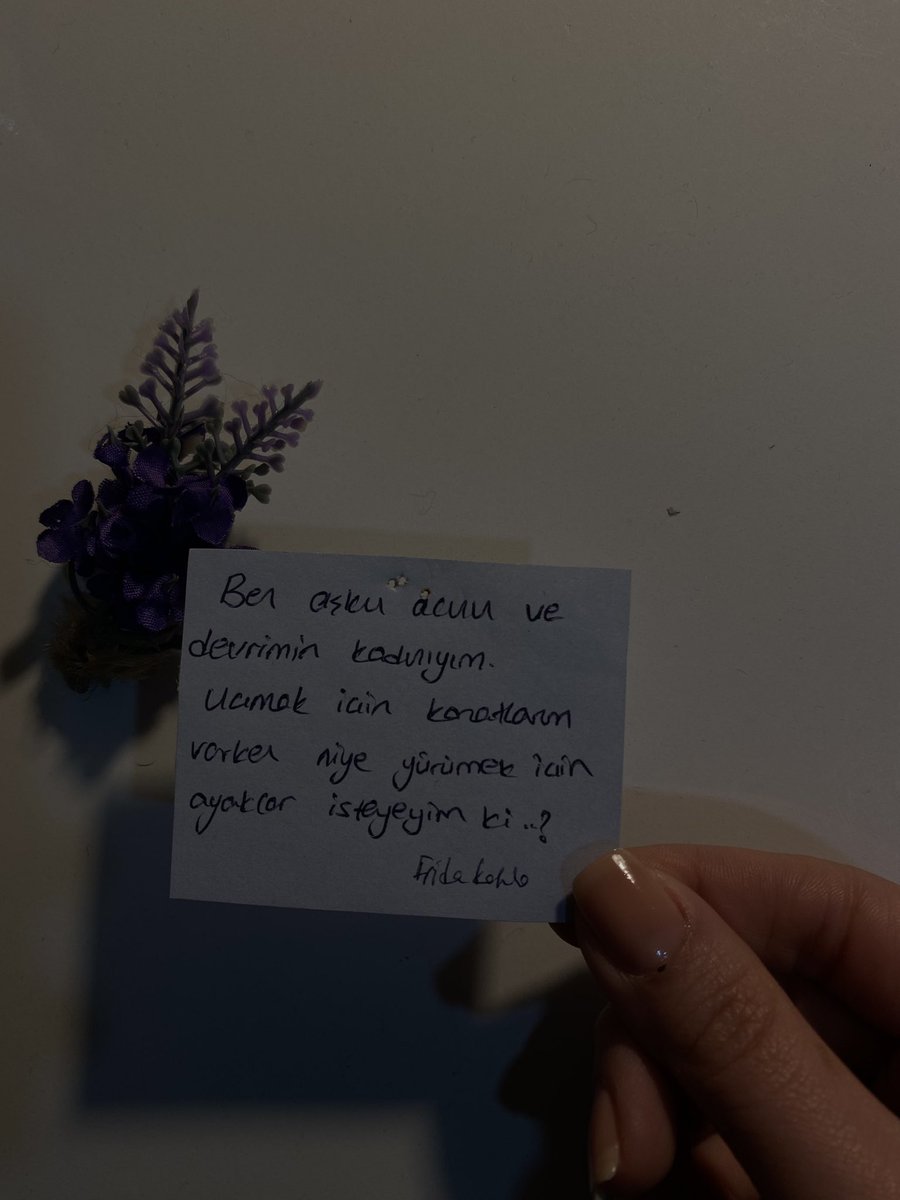 Ben aşkın acının ve
devrimin kadınıyım.
Uçmak için kanatlarım
varken niye yürümek için
ayaklar isteyeyim ki..?
Frida Kahlo